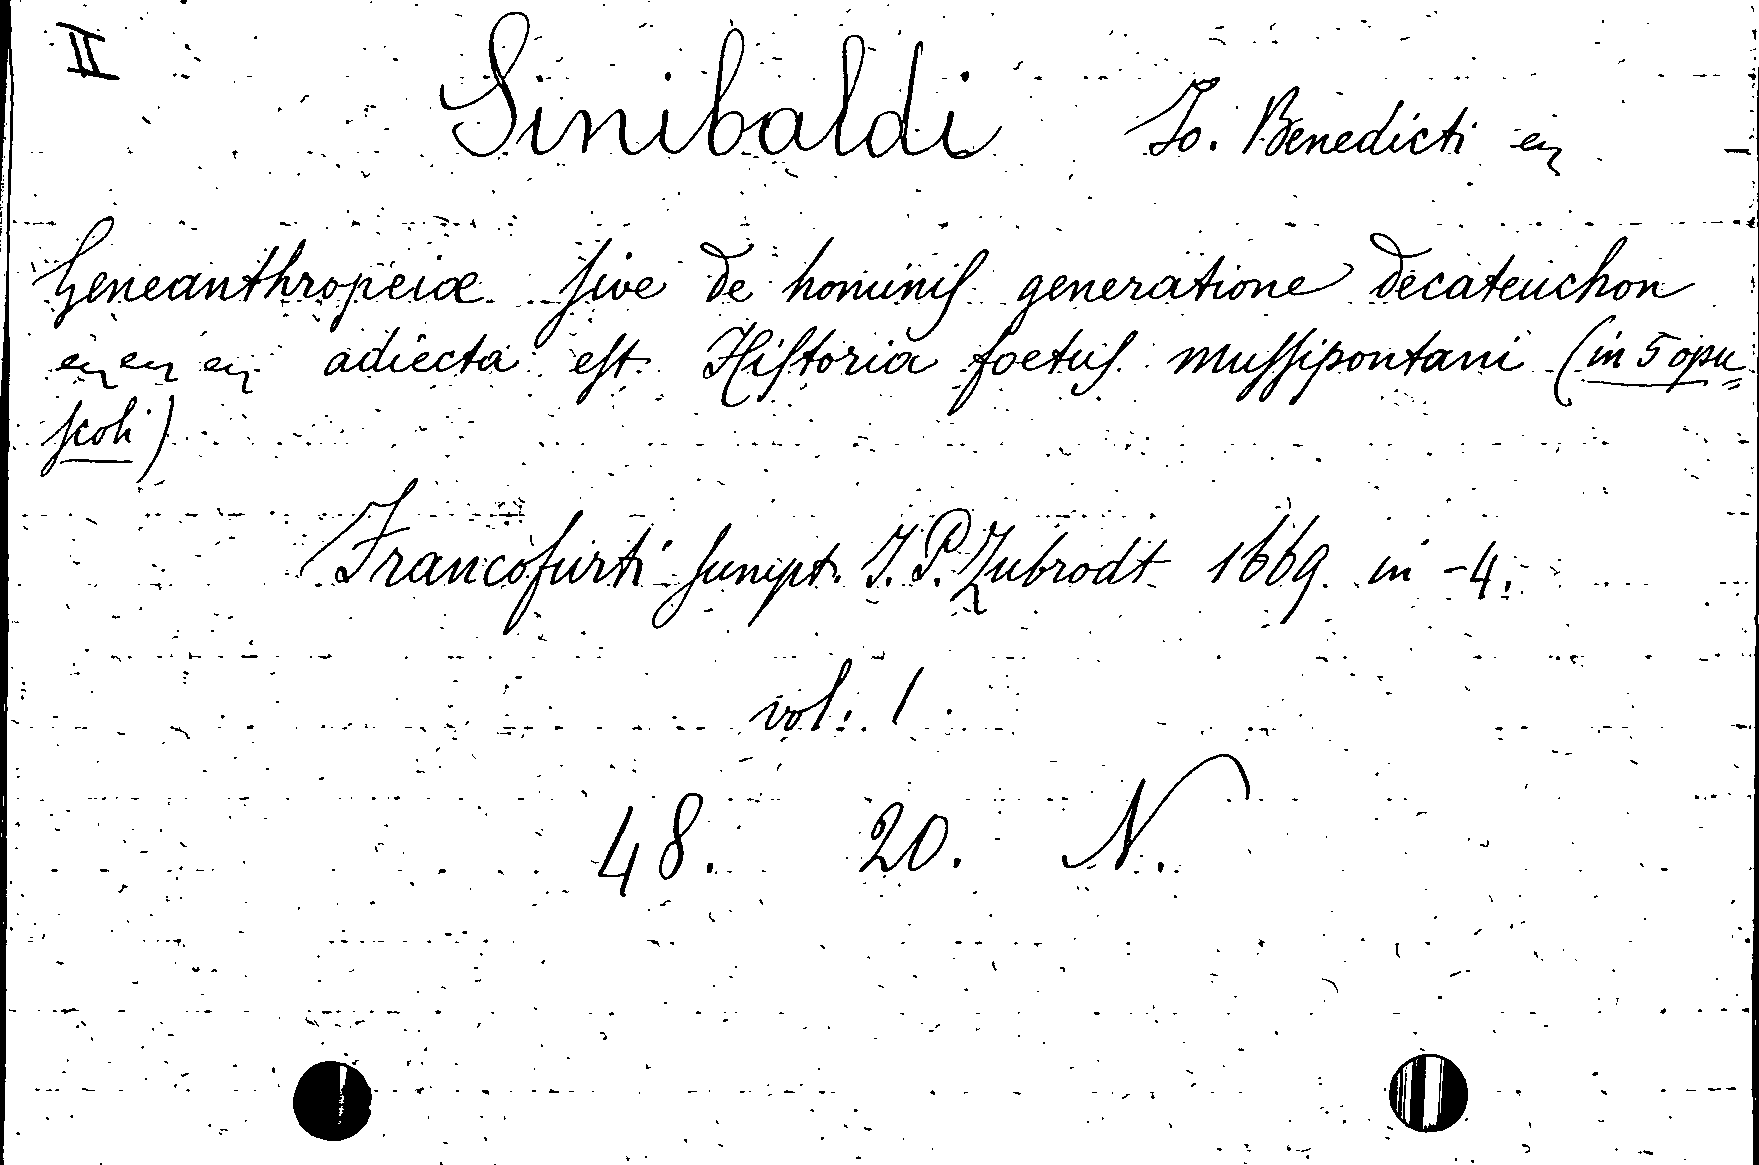 II
Sinibaldi Jo. Benedicti
Geneanthropeiæ sive de hominis generatione decateuchon
adiecta est Historia foetus mussipontani (in 5 opu=
scoli)
Francofurti sumpt. J. P. Zubrodt 1669. in -4.
vol: 1
48. 20. N.